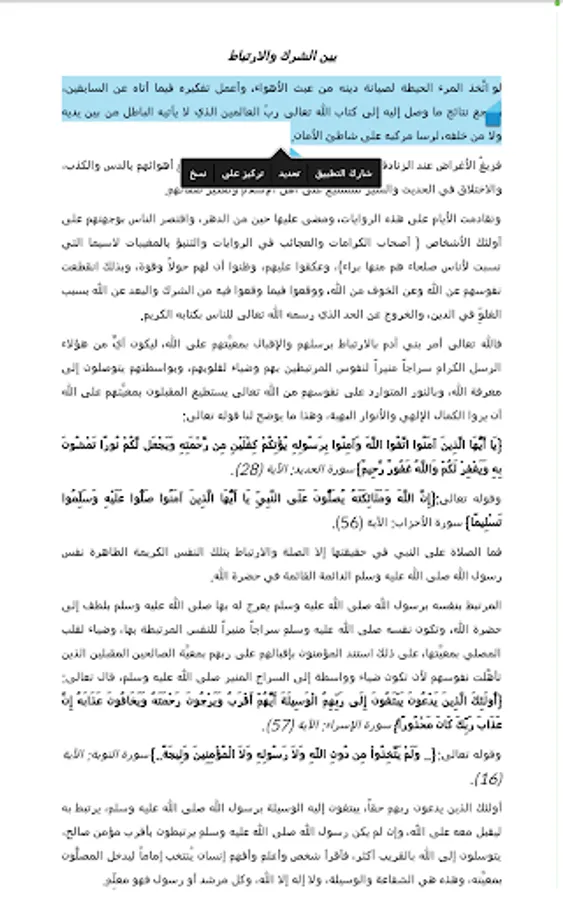 بين الشرك والارتباط
لو اتّخذ المرء الحيطة لصيانة دينه من عبث الأهواء، وأعمل تفكيره فيما أتاه عن السابقين،
جع نتائج ما وصل إليه إلى كتاب الله تعالى ربّ العالمين الذي لا يأتيه الباطل من بين يديه
ولا من خلفه، لرسا مركبه على شاطئ الأمان.
شارك التطبيق تحديد تركيز على نسخ
فريغُ الأغراض عند الزنادقة أهوائهم بالدس والكذب،
والاختلاق في الحديث
وتقادمت الأيام على هذه الروايات، ومضى عليها حين من الدهر، واقتصر الناس بوجهتهم على
أولئك الأشخاص ( أصحاب الكرامات والعجائب في الروايات والتنبؤ بالمغيبات لاسيما التي
نسبت لأناس صلحاء هم منها براء)، وعكفوا عليهم، وظنوا أن لهم حولاً وقوة، وبذلك انقطعت
نفوسهم عن الله وعن الخوف من الله، ووقعوا فيما وقعوا فيه من الشرك والبعد عن الله بسبب
الغلوّ في الدين، والخروج عن الحد الذي رسمه الله تعالى للناس بكتابه الكريم.
فالله تعالى أمر بني آدم بالارتباط برسلهم والإقبال بمعيّتهم على الله، ليكون أيٌّ من هؤلاء
الرسل الكرام سراجاً منيراً لنفوس المرتبطين بهم وضياء لقلوبهم، وبواسطتهم يتوصلون إلى
معرفة الله، وبالنور المتوارد على نفوسهم من الله تعالى يستطيع المقبلون بمعيّتهم على الله
أن يروا الكمال الإلهي والأنوار البهية، وهذا ما يوضح لنا قوله تعالى:
{يَا أَيُّهَا الَّذِينَ آمَنُوا اتَّقُوا اللَّهَ وَآمِنُوا بِرَسُولِهِ يُؤْتِكُمْ كِفْلَيْنِ مِن رَّحْمَتِهِ وَيَجْعَل لَّكُمْ نُورًا تَمْشُونَ
بِهِ وَيَغْفِرْ لَكُمْ وَاللَّهُ غَفُورٌ رَّحِيمٌ} سورة الحديد: الآية (28).
وقوله تعالى:{إِنَّ اللَّهَ وَمَلَائِكَتَهُ يُصَلُّونَ عَلَى النَّبِيِّ يَا أَيُّهَا الَّذِينَ آمَنُوا صَلُّوا عَلَيْهِ وَسَلِّمُوا
تَسْلِيمًا} سورة الأحزاب: الآية (56).
فما الصلاة على النبي في حقيقتها إلا الصلة والارتباط بتلك النفس الكريمة الطاهرة نفس
رسول الله صلى الله عليه وسلم الدائمة القائمة في حضرة الله.
المرتبط بنفسه برسول الله صلى الله عليه وسلم يعرج له بها صلى الله عليه وسلم بلطف إلى
حضرة الله، وتكون نفسه صلى الله عليه وسلم سراجاً منيراً للنفس المرتبطة بها، وضياء لقلب
المصلي بمعيّتها، على ذلك استند المؤمنون بإقبالهم على ربهم بمعيّة الصالحين المقبلين الذين
تأهّلت نفوسهم لأن تكون ضياء وواسطة إلى السراج المنير صلى الله عليه وسلم، قال تعالى:
{أُولَئِكَ الَّذِينَ يَدْعُونَ يَبْتَغُونَ إِلَى رَبِّهِمُ الْوَسِيلَةَ أَيُّهُمْ أَقْرَبُ وَيَرْجُونَ رَحْمَتَهُ وَيَخَافُونَ عَذَابَهُ إِنَّ
عَذَابَ رَبِّكَ كَانَ مَحْذُورًا} سورة الإسراء: الآية (57).
وقوله تعالى:{.. وَلَمْ يَتَّخِذُوا مِن دُونِ اللَّهِ وَلَا رَسُولِهِ وَلَا الْمُؤْمِنِينَ وَلِيجَةً..} سورة التوبة: الآية
(16).
أولئك الذين يدعون ربهم حقاً، يبتغون إليه الوسيلة برسول الله صلى الله عليه وسلم، يرتبط به
ليقبل معه على الله، وإن لم يكن رسول الله صلى الله عليه وسلم يرتبطون بأقرب مؤمن صالح،
يتوسلون إلى الله بالقريب أكثر، فأقرأ شخص وأعلم وأفهم إنسان يُنتخب إماماً ليدخل المصلّون
بمعيّته، وهذه هي الشفاعة والوسيلة، ولا إله إلا الله، وكل مرشد أو رسول فهو معلّم.